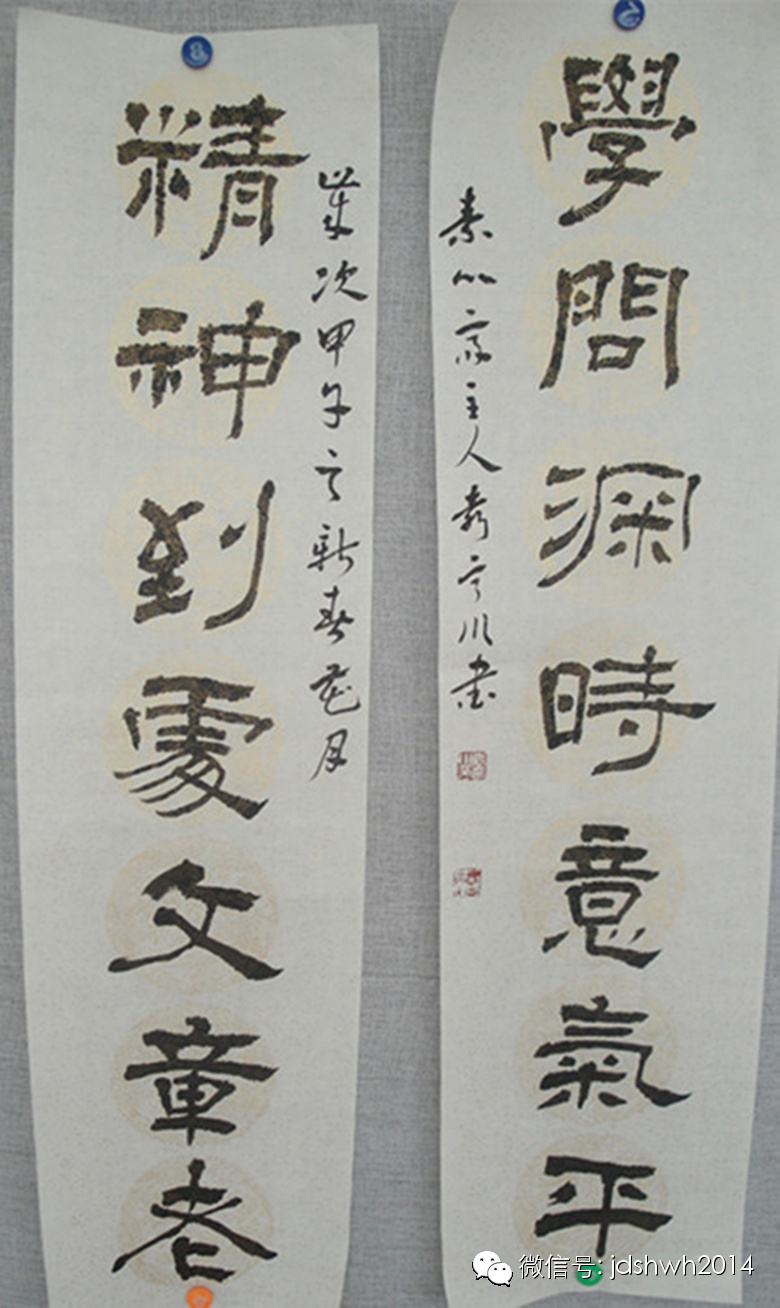 學問深時意氣平
素心齋主人川書
歲次甲午之新春花月
精神到處文章老
微信号: jdshwh2014